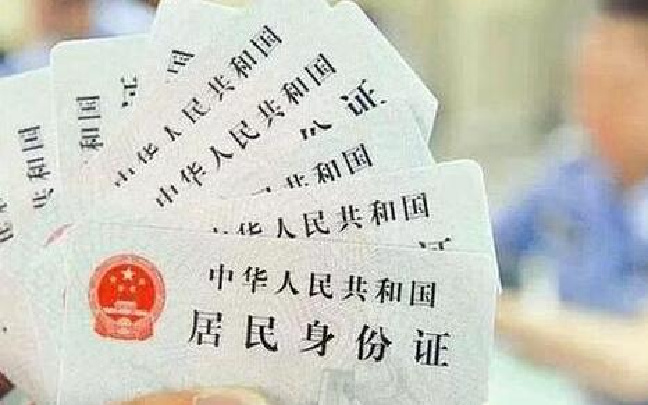 中华人民共和国
中华人民共和国
证
共和国
人民共和国
中华人民共和国
居民身份证